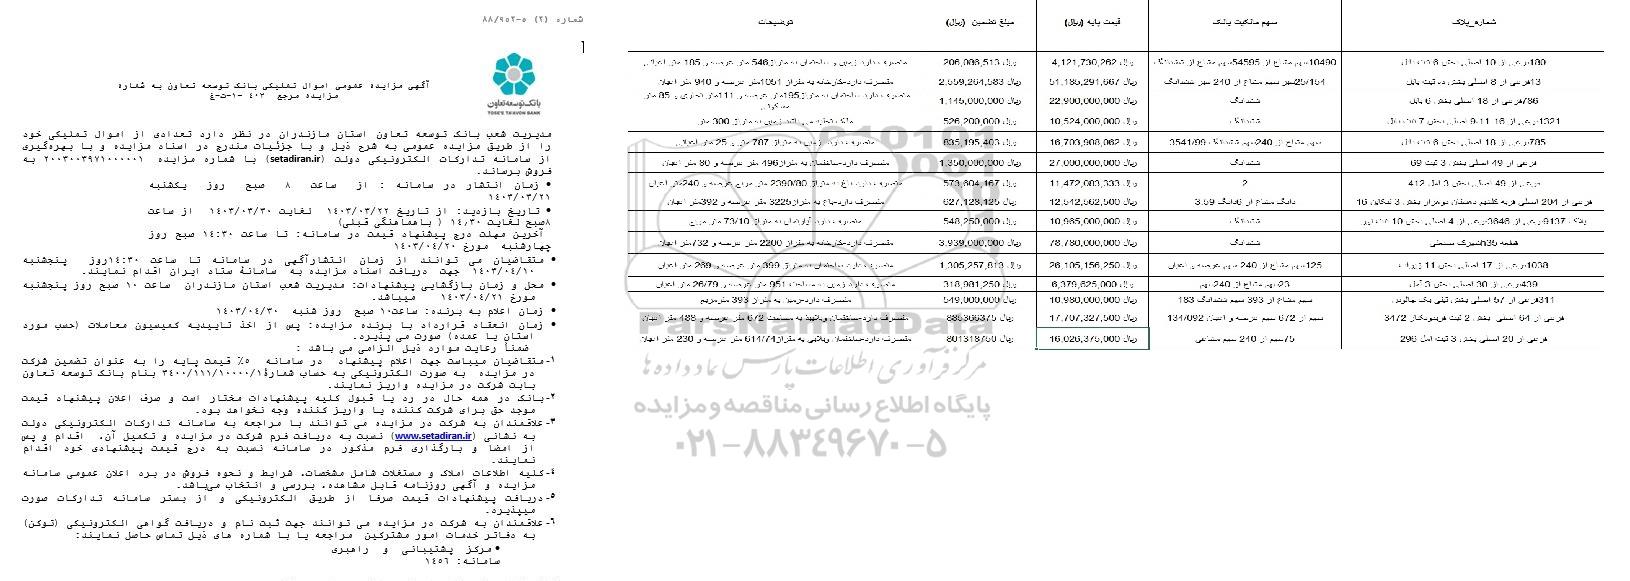 شماره (۲) ۸۸/۹۵۲-۵
بانک توسعه تعاون
TOSE'E TA'AVON BANK
آگهی مزایده عمومی اموال تملیکی بانک توسعه تعاون به شماره
مزایده مرجع ۴۰۳-۱-ت-غ
مدیریت شعب بانک توسعه تعاون استان مازندران در نظر دارد تعدادی از اموال تملیکی خود
را از طریق مزایده عمومی به شرح ذیل و با جزئیات مندرج در اسناد مزایده و با بهره‌گیری
از سامانه تدارکات الکترونیکی دولت (setadiran.ir) با شماره مزایده ۲۰۰۳۰۰۳۹۷۱۰۰۰۰۰۱ به
فروش برساند.
• زمان انتشار در سامانه : از ساعت ۸ صبح روز یکشنبه
۱۴۰۳/۰۳/۲۱
• تاریخ بازدید: از تاریخ ۱۴۰۳/۰۳/۲۲ لغایت ۱۴۰۳/۰۳/۳۰ از ساعت
۸صبح لغایت ۱۴٫۳۰ ( باهماهنگی قبلی)
آخرین مهلت درج پیشنهاد قیمت در سامانه: تا ساعت ۱۴:۳۰ صبح روز
چهارشنبه مورخ ۱۴۰۳/۰۴/۲۰
• متقاضیان می توانند از زمان انتشارآگهی در سامانه تا ساعت ۱۴:۳۰روز پنجشنبه
۱۴۰۳/۰۴/۱۰ جهت دریافت اسناد مزایده به سامانهٔ ستاد ایران اقدام نمایند.
• محل و زمان بازگشایی پیشنهادات: مدیریت شعب استان مازندران ساعت ۱۰ صبح روز پنجشنبه
مورخ ۱۴۰۳/۰۴/۲۱ میباشد.
• زمان اعلام به برنده: ساعت۱۰ صبح روز شنبه ۱۴۰۳/۰۴/۳۰
• زمان انعقاد قرارداد با برنده مزایده: پس از اخذ تاییدیه کمیسیون معاملات (حسب مورد
استان یا عمده) صورت می پذیرد.
ضمناً رعایت موارد ذیل الزامی می باشد :
۱-متقاضیان میبایست جهت اعلام پیشنهاد در سامانه ۵٪ قیمت پایه را به عنوان تضمین شرکت
در مزایده به صورت الکترونیکی به حساب شمارهٔ ۳۴۰۰/۱۱۱/۱۰۰۰۰/۱ بنام بانک توسعه تعاون
بابت شرکت در مزایده واریز نمایند.
۲-بانک در همه حال در رد یا قبول کلیه پیشنهادات مختار است و صرف اعلان پیشنهاد قیمت
موجد حق برای شرکت کننده یا واریز کننده وجه نخواهد بود.
۳-علاقمندان به شرکت در مزایده می توانند با مراجعه به سامانه تدارکات الکترونیکی دولت
به نشانی (www.setadiran.ir) نسبت به دریافت فرم شرکت در مزایده و تکمیل آن، اقدام و پس
از امضا و بارگذاری فرم مذکور در سامانه نسبت به درج قیمت پیشنهادی خود اقدام
نمایند.
۴-کلیه اطلاعات املاک و مستغلات شامل مشخصات، شرایط و نحوه فروش در برد اعلان عمومی سامانه
مزایده و آگهی روزنامه قابل مشاهده، بررسی و انتخاب می‌باشد.
۵-دریافت پیشنهادات قیمت صرفا از طریق الکترونیکی و از بستر سامانه تدارکات صورت
میپذیرد.
۶-علاقمندان به شرکت در مزایده می توانند جهت ثبت نام و دریافت گواهی الکترونیکی (توکن)
به دفاتر خدمات امور مشترکین مراجعه یا با شماره های ذیل تماس حاصل نمایند:
• مرکز پشتیبانی و راهبری
سامانه: ۱۴۵۶
شماره_پلاک سهم مالکیت بانک قیمت پایه (ریال) مبلغ تضمین (ریال) توضیحات
180فرعی از 10 اصلی بخش 6 ثبت بابل 10490سهم مشاع از 54595سهم مشاع از ششدانگ 4,121,730,262 ریال 206,086,513 ریال متصرف دارد-زمین و ساختمان به متراژ546 متر عرصه و 185 متر اعیانی
13فرعی از 8 اصلی بخش ده ثبت بابل 25/154سهم مشاع از 240 سهم ششدانگ 51,185,291,667 ریال 2,559,264,583 ریال متصرف دارد-کارخانه به متراژ 1051متر عرصه و 940 متر اعیان
786فرعی از 18 اصلی بخش 6 بابل ششدانگ 22,900,000,000 ریال 1,145,000,000 ریال متصرف دارد-ساختمان به متراژ195متر عرصه و 111متر تجاری و 85 متر مسکونی
1321فرعی از 16-11-9 اصلی بخش 7 ثبت بابل ششدانگ 10,524,000,000 ریال 526,200,000 ریال ملک تخلیه می باشد-زمین به متراژ 300 متر
785فرعی از 18 اصلی بخش 6 ثبت بابل 3541/99 سهم مشاع از 240سهم ششدانگ 16,703,908,062 ریال 835,195,403 ریال متصرف دارد-زمین به متراژ 787 متر و 25 متر اعیانی
فرعی از 49 اصلی بخش 3 ثبت 69 ششدانگ 27,000,000,000 ریال 1,350,000,000 ریال متصرف دارد-ساختمان به متراژ496 متر عرصه و 80 متر اعیان
فرعی از 49 اصلی بخش 3 آمل 412 2 11,472,083,333 ریال 573,604,167 ریال متصرف دارد-باغ به متراژ 2390/80 متر مربع عرصه و 240متر اعیان
فرعی از 204 اصلی قریه گلنهم دهستان دوهزار بخش 3 تنکابن 16 3.59 دانگ مشاع از 6دانگ 12,542,562,500 ریال 627,128,125 ریال متصرف دارد-باغ به متراژ3225 متر عرصه و 392متر اعیان
پلاک 9137فرعی از 3646فرعی از 4 اصلی بخش 10 ثبت ششدانگ 10,965,000,000 ریال 548,250,000 ریال متصرف دارد-آپارتمان به متراژ 73/10 متر مربع
قطعه 35hشهرک صنعتی ششدانگ 78,780,000,000 ریال 3,939,000,000 ریال متصرف دارد-کارخانه به متراژ 2200 متر عرصه و 732متر اعیان
1038فرعی از 17 اصلی بخش 11 125سهم مشاع از 240 سهم عرصه و اعیان 26,105,156,250 ریال 1,305,257,813 ریال متصرف دارد-ساختمان به متراژ 399 متر عرصه و 269 متر اعیان
439فرعی از 30 اصلی بخش 3 آمل 23سهم مشاع از 240سهم 6,379,625,000 ریال 318,981,250 ریال متصرف دارد-زمین به مساحت 951 متر عرصه و 26/79 متر اعیان
311فرعی از 57 اصلی بخش قبلی یک چالوس سهم مشاع از 393 سهم ششدانگ 183 10,980,000,000 ریال 549,000,000 ریال متصرف دارد-زمین به متراژ 393 مترمربع
فرعی از 64 اصلی بخش 2 ثبت فریدونکنار 3472 سهم از 672 سهم عرصه و اعیان 134/092 17,707,327,500 ریال 885366375 ریال متصرف دارد-ساختمان ویلا به مساحت 672 متر عرصه و 488 متر اعیان
فرعی از 20 اصلی بخش 3 ثبت آمل 296 75سهم از 240 سهم مشاعی 16,026,375,000 ریال 801318750 ریال متصرف دارد-ساختمان ویلایی به متراژ614/74 متر عرصه و 230 متر اعیان
ParsNamadData
مرکز فرآوری اطلاعات پارس نماد داده ها
پایگاه اطلاع رسانی مناقصه و مزایده
۰۲۱-۸۸۳۴۹۶۷۰-۵